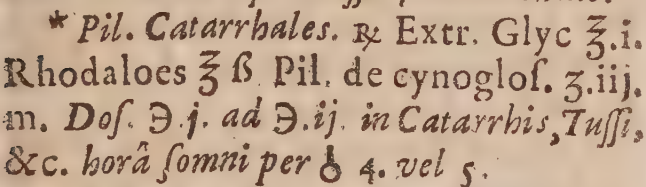 * Pil. Catarrhales. ℞ Extr. Glyc ℥.i.
Rhodaloes ℥ ß Pil. de cynogloſ. ʒ.iij.
m. Doſ. ℈.j. ad ℈.ij. in Catarrhis, Tuſſi,
&c. horâ ſomni per 4. vel 5.